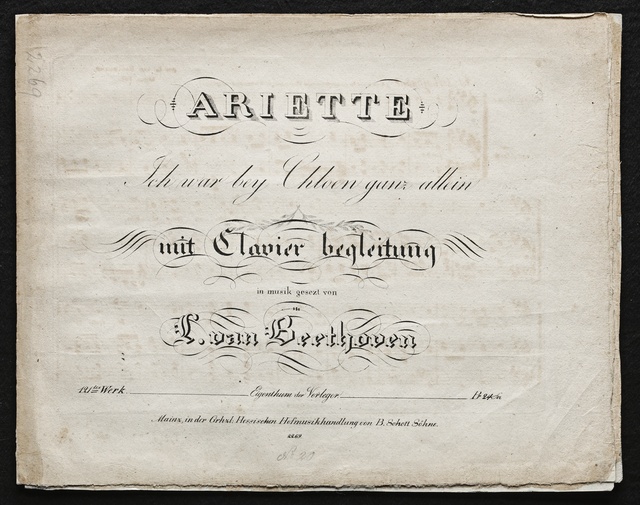 ARIETTE
Ich war bey Chloen ganz allein
mit Clavier begleitung
in musik gesezt von
L. van Beethoven
121tes Werk. Eigenthum der Verleger. Pr. 24 Xr.
Mainz, in der Grhzl. Hessischen Hofmusikhandlung von B. Schott Söhne.